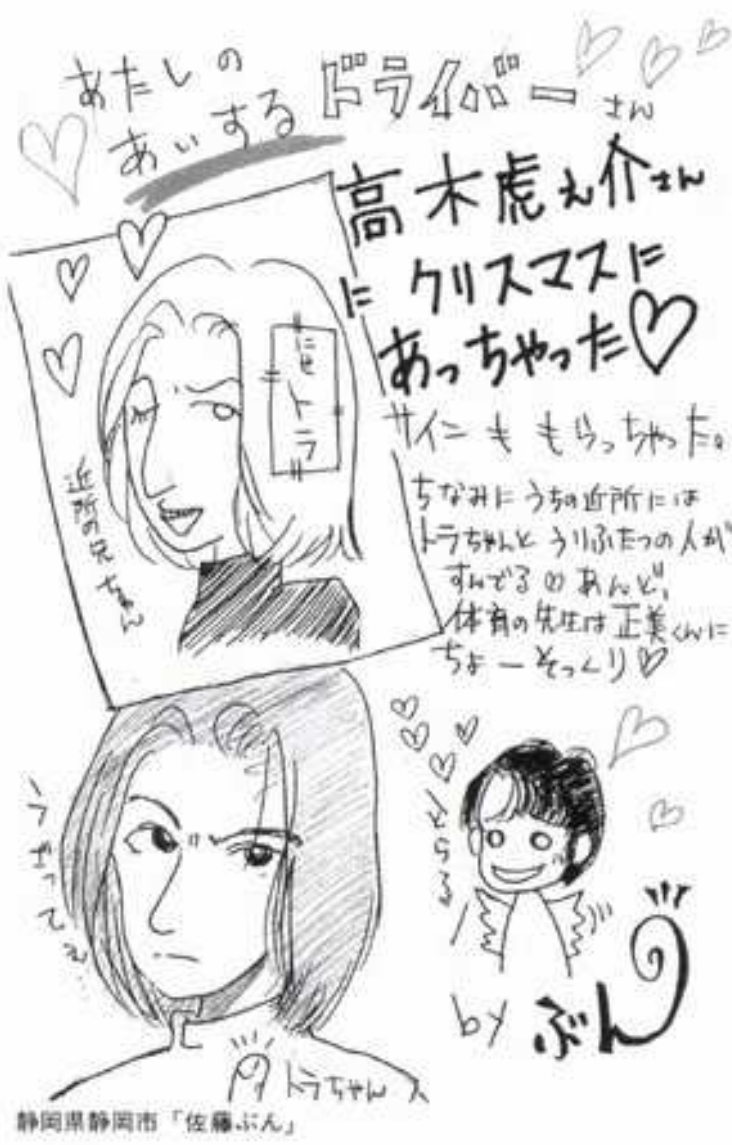 あたしの
あいする ドライバーさん
高木虎之介さん
に クリスマスに
あっちゃった♡
サインも もらっちゃった。
ちなみに うちの近所には
トラちゃんと うりふたつの人が
すんでる♡ あんど、
体育の先生は 正美くんに
ちょーそっくり♡
にせトラ
近所の兄ちゃん
うざってぇ…
とらさん
トラちゃん
by ぶん
静岡県静岡市「佐藤ぶん」